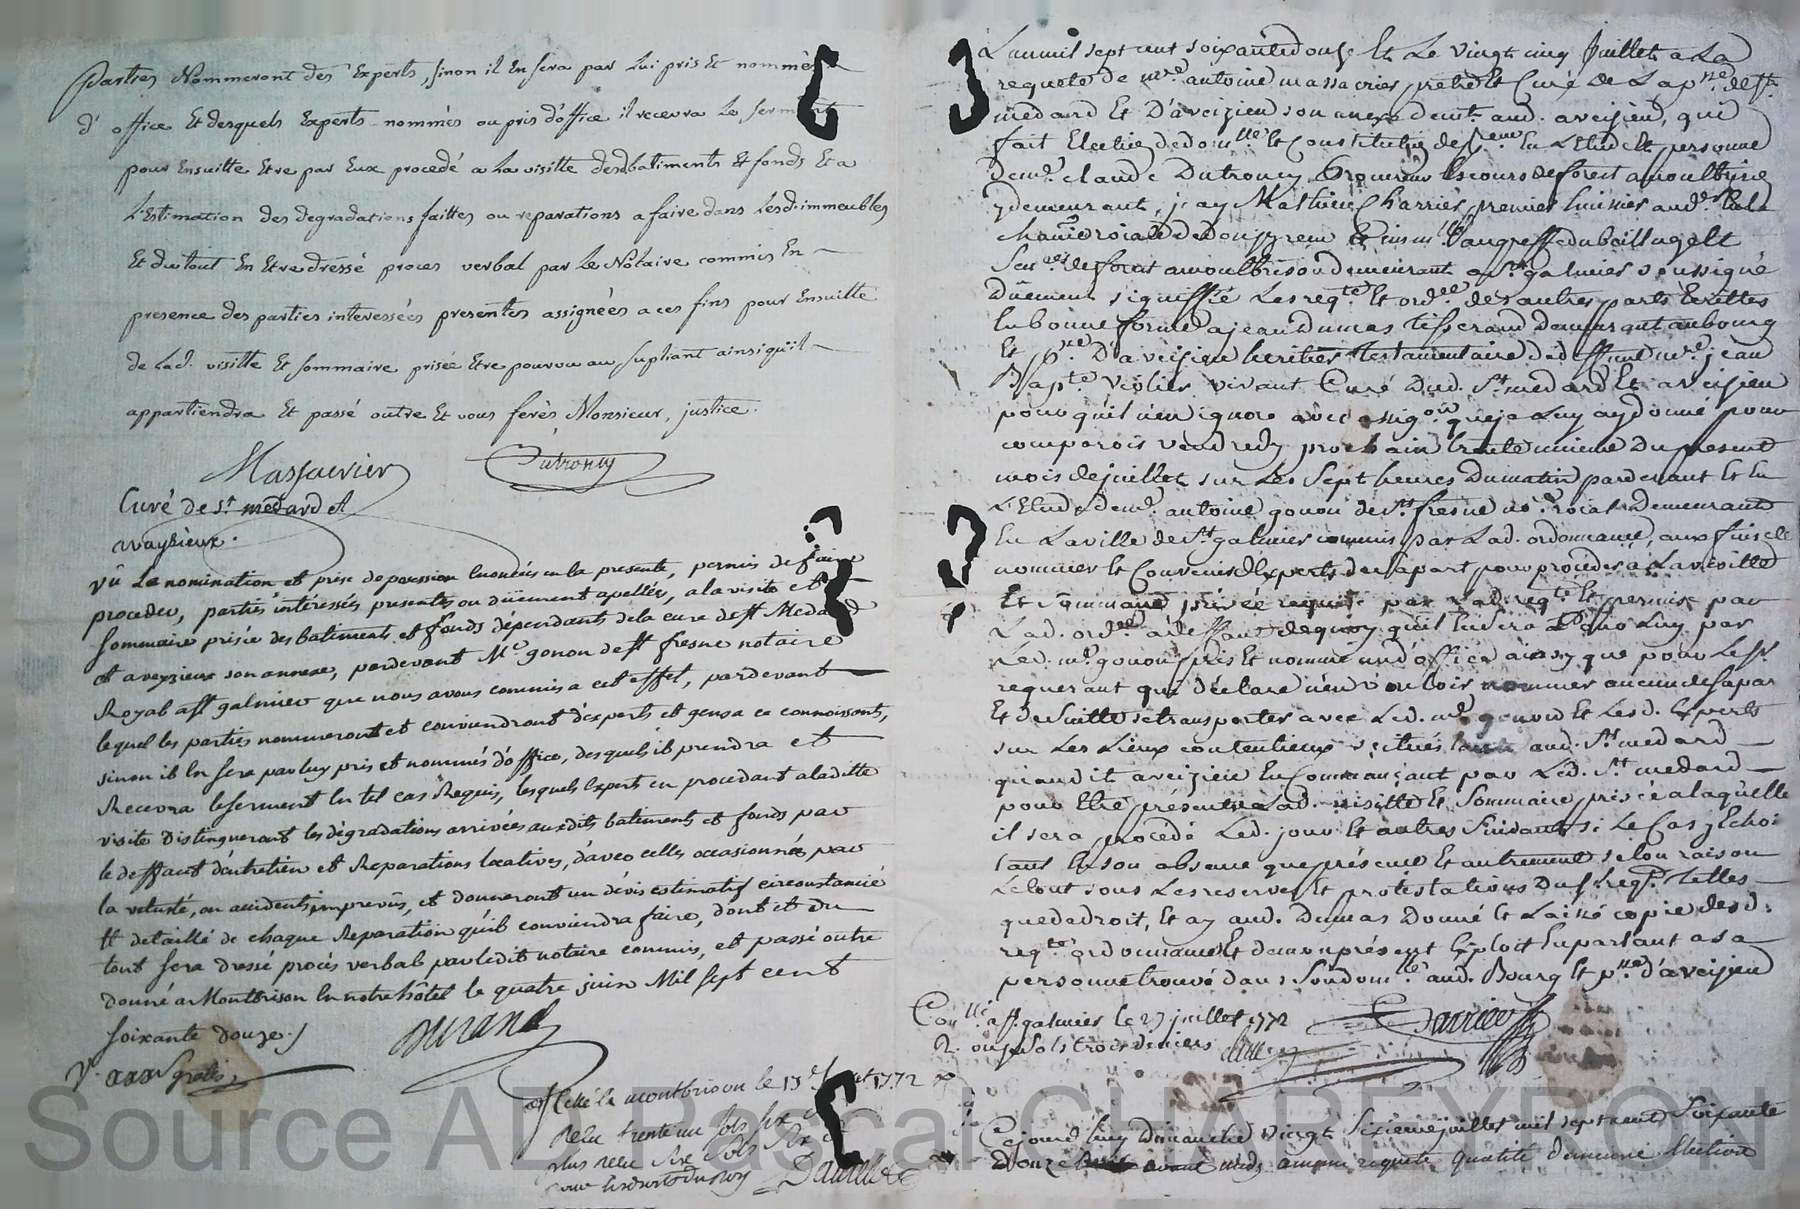 parties Nommeront des Experts, sinon il En sera par Lui pris Et nommés
d'office Et desquels Experts nommés ou pris d'office il recevra Le serment
pour Ensuitte Etre par Eux procedé a La visitte desd batiments Et fonds Et a
L'Estimation des degradations faittes ou reparations a faire dans Lesd. immeubles
Et du tout En Etre dressé proces verbal par Le Notaire commis En
presence des parties interessées presentes assignées a ces fins pour Ensuitte
de Lad. visitte Et sommaire prisée Etre pourvu au supliant ainsi qu'il
appartiendra Et passé outre Et vous ferès Monsieur, justice.
Massacrier Dutroncy
Curé de St. medard et
avaysieux.
Vû La nomination et prise de possession énoncées en la presente, permis de faire
proceder, parties intéressées presentes ou düement apellées, a la visite et
sommaire prisée des batiments et fonds dépendants de la cure de St Medard
et aveyzieux son annexe, pardevant Me gonon de St fresne notaire
Royal a St galmier que nous avons commis a cet effet, pardevant
lequel les parties nommeront et conviendront d'experts et gens a ce connoissants,
sinon il En sera par luy pris et nommés d'office, desquels il prendra et
Recevra le serment En tel cas Requis, lesquels Experts en procedant a laditte
visite Distingueront les dégradations arrivées auxdits batiments et fonds par
le deffaut d'entretien et Reparations locatives, d'avec celles occasionnées par
la vetusté, ou accidents imprevûs, et donneront un dévis estimatif circonstancié
Et detaillé de chaque Reparation qu'il conviendra faire, dont et du
tout sera dressé procès verbal par ledit notaire commis, et passé outre
Donné a Montbrison En notre hôtel le quatre juin Mil sept cent
soixante douze./
Durand
gratis
le montbrison le 13e 1772
Reçu trente un sols six
plus reçu six sols six
L'an mil sept cent soixante douze Et Le vingt cinq Juillet a La
requete de mre. antoine massacrier pretre Et Curé de La psse. de St.
medard Et D'aveizieu son anexe demt. aud. aveizieu, qui
fait Election de domlle Et Constitution de En L'Etude Et personne
de me. claude Dutroncy Procureur Es cours de forest a montbrison
y demeurant, j'ay Mathieu Charrier, premier huissier
soussigné
Düement signiffié Les reqte. Et ordce. des autres parts Ecrittes
En bonne forme a jean Dumas tisserand demeurant au bourg
Et psse. D'aveizieu heritier testamentaire de deffunt mre. jean
Bapte. violier vivant Curé Dud. St. medard Et aveizieu
pour qu'il n'en ignore avec assigon. que je Luy ay donné pour
comparoir vendredy prochain trente unieme du present
mois de juillet sur Les sept heures du matin pardevant Et En
L'Etude de me. antoine gonon de St. fresne no.re roial Demeurant
En La ville de St. galmier commis par Lad. ordonnance, aux fins de
nommer Et Convenir d'Experts de sa part pour procéder a La visitte
Et Sommaire prisée requise par Lad. reqte. Et permise par
Lad. ordce. a deffaut de quoy qu'il En sera Pour Luy par
Led. me. gonon pris Et nommé un d'office ainsy que pour Le Sr.
requerant qui déclare n'en vouloir nommer aucun de sa part
Et de Suitte se transporter avec Led. me. gonon Et Lesd. Experts
sur Les Lieux contentieux scitués aud. St. medard
qu'audit aveizieu En Commançant par Led. St. medard
pour Etre présent a Lad. visitte Et Sommaire prisée a laquelle
il sera procédé Led. jour Et autres Suivants si Le Cas y Echoit
tant En son absence que présence Et autrement selon raison
Le tout sous Les reserves Et protestations du Sr. reqt. telles
que de droit, Et ay aud. Dumas Donné Et Laissé copie desd.
reqte. ordonnance Et de mon présent Exploit En parlant a sa
personne trouvé dans Son domlle. aud. Bourg Et psse. d'aveizieu
Conllé a St. galmier le 27 juillet 1772 Charrier
R. onze sols trois deniers
Cejourd'huy dimanche vingt sixieme juillet mil sept cent soixante
Douze avant midy a meme requete qualité demeure Election
Source AD Pascal CHAREYRON